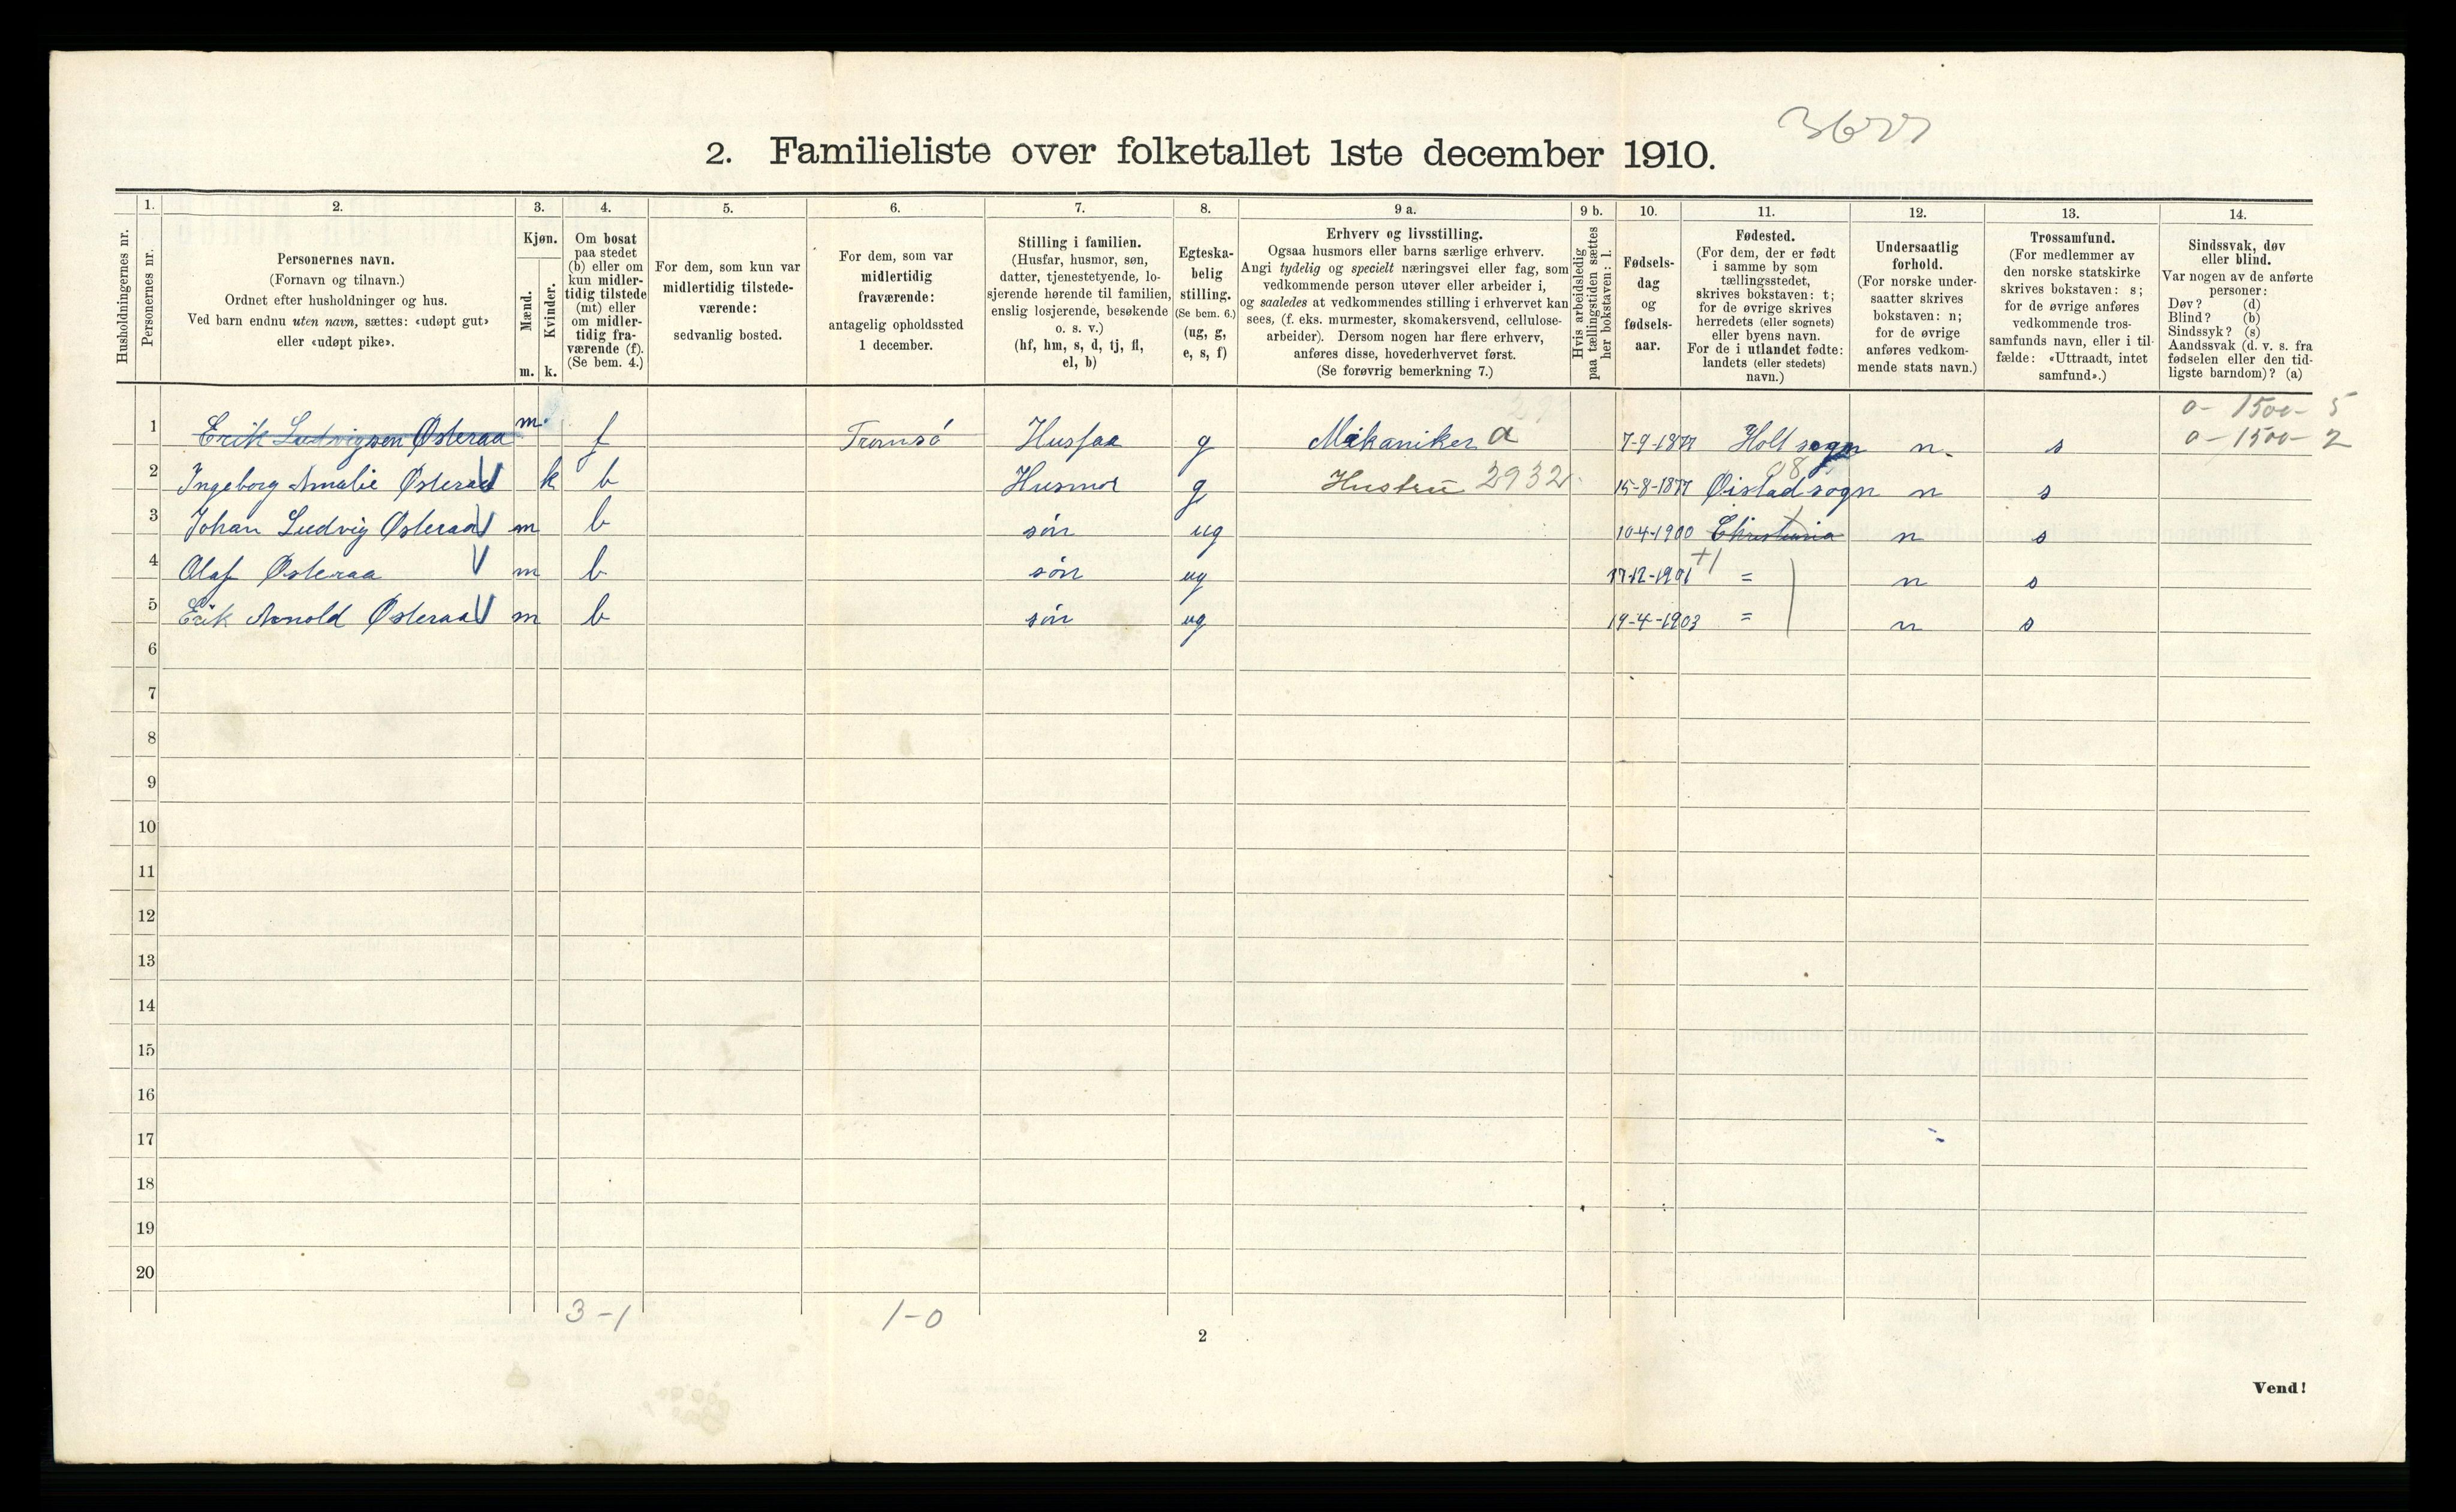 36
2. Familieliste over folketallet 1ste december 1910.
Husholdningernes nr.
1. Personernes nr.
2. Personernes navn. (Fornavn og tilnavn.) Ordnet efter husholdninger og hus. Ved barn endnu uten navn, sættes: «udøpt gut» eller «udøpt pike».
3. Kjøn. Mænd. m. Kvinder. k.
4. Om bosat paa stedet (b) eller om kun midlertidig tilstede (mt) eller om midlertidig fraværende (f). (Se bem. 4.)
5. For dem, som kun var midlertidig tilstedeværende: sedvanlig bosted.
6. For dem, som var midlertidig fraværende: antagelig opholdssted 1 december.
7. Stilling i familien. (Husfar, husmor, søn, datter, tjenestetyende, losjerende hørende til familien, enslig losjerende, besøkende o. s. v.) (hf, hm, s, d, tj, fl, el, b)
8. Egteskabelig stilling. (Se bem. 6.) (ug, g, e, s, f)
9 a. Erhverv og livsstilling. Ogsaa husmors eller barns særlige erhverv. Angi tydelig og specielt næringsvei eller fag, som vedkommende person utøver eller arbeider i, og saaledes at vedkommendes stilling i erhvervet kan sees, (f. eks. murmester, skomakersvend, cellulosearbeider). Dersom nogen har flere erhverv, anføres disse, hovederhvervet først. (Se forøvrig bemerkning 7.)
9 b. Hvis arbeidsledig paa tællingstiden sættes her bokstaven: l.
10. Fødselsdag og fødselsaar.
11. Fødested. (For dem, der er født i samme by som tællingsstedet, skrives bokstaven: t; for de øvrige skrives herredets (eller sognets) eller byens navn. For de i utlandet fødte: landets (eller stedets) navn.)
12. Undersaatlig forhold. (For norske undersaatter skrives bokstaven: n; for de øvrige anføres vedkommende stats navn.)
13. Trossamfund. (For medlemmer av den norske statskirke skrives bokstaven: s; for de øvrige anføres vedkommende trossamfunds navn, eller i tilfælde: «Uttraadt, intet samfund».)
14. Sindssvak, døv eller blind. Var nogen av de anførte personer: Døv? (d) Blind? (b) Sindssyk? (s) Aandssvak (d. v. s. fra fødselen eller den tidligste barndom)? (a)
0-1500-5
1 Erik Ludvigsen Østeraa m. f Tromsö Husfaa g Mekaniker a 7-9-1877 Holt sogn n. s 0-1500-2
2 Ingeborg Amalie Østeraa k b Husmor g Hustru 2932 15-8-1877 Øistad sogn n s
3 Johan Ludvig Østeraa m b sön ug 10-4-1900 Christiania n s
4 Olaf Østeraa m b sön ug 17-12-1901 = n s
5 Erik Arnold Østeraa m b sön ug 19-4-1903 = n s
6
7
8
9
10
11
12
13
14
15
16
17
18
19
20
3-1 1-0
2
Vend!